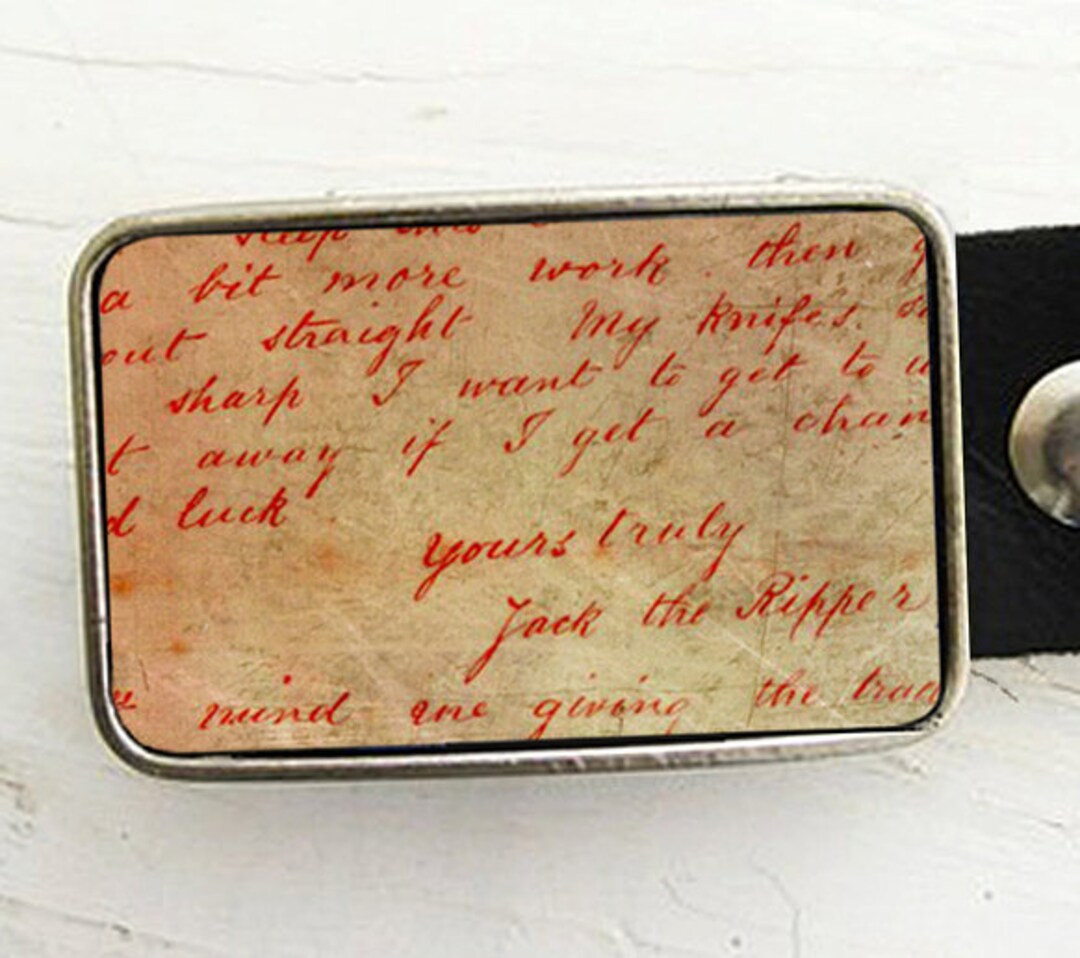 a bit more work . then
out straight My knifes
sharp I want to get to
t away if I get a chan
d luck
yours truly
Jack the Ripper
mind me giving the trad